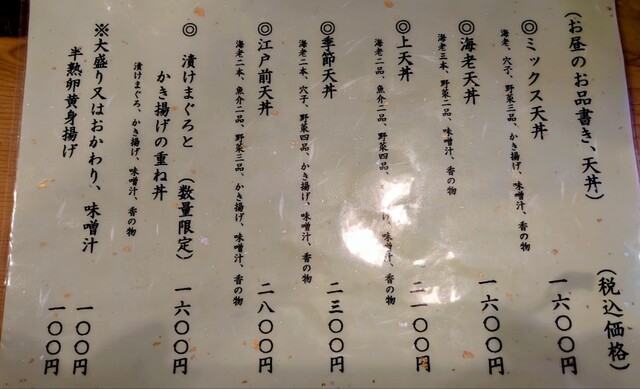 （お昼のお品書き、天丼）　（税込価格）
◎ミックス天丼　一六〇〇円
海老、穴子、野菜三品、かき揚げ、味噌汁、香の物
◎海老天丼　一六〇〇円
海老三本、野菜二品、味噌汁、香の物
◎上天丼　二一〇〇円
海老二品、魚介二品、野菜四品、 げ、味噌汁、香の物
◎季節天丼　二三〇〇円
海老二本、穴子、野菜四品、かき揚げ、味噌汁、香の物
◎江戸前天丼　二八〇〇円
海老二本、魚介二品、野菜三品、かき揚げ、味噌汁、香の物
◎漬けまぐろと
かき揚げの重ね丼　（数量限定）　一六〇〇円
漬けまぐろ、かき揚げ、味噌汁、香の物
※大盛り又はおかわり、味噌汁　一〇〇円
半熟卵黄身揚げ　一〇〇円